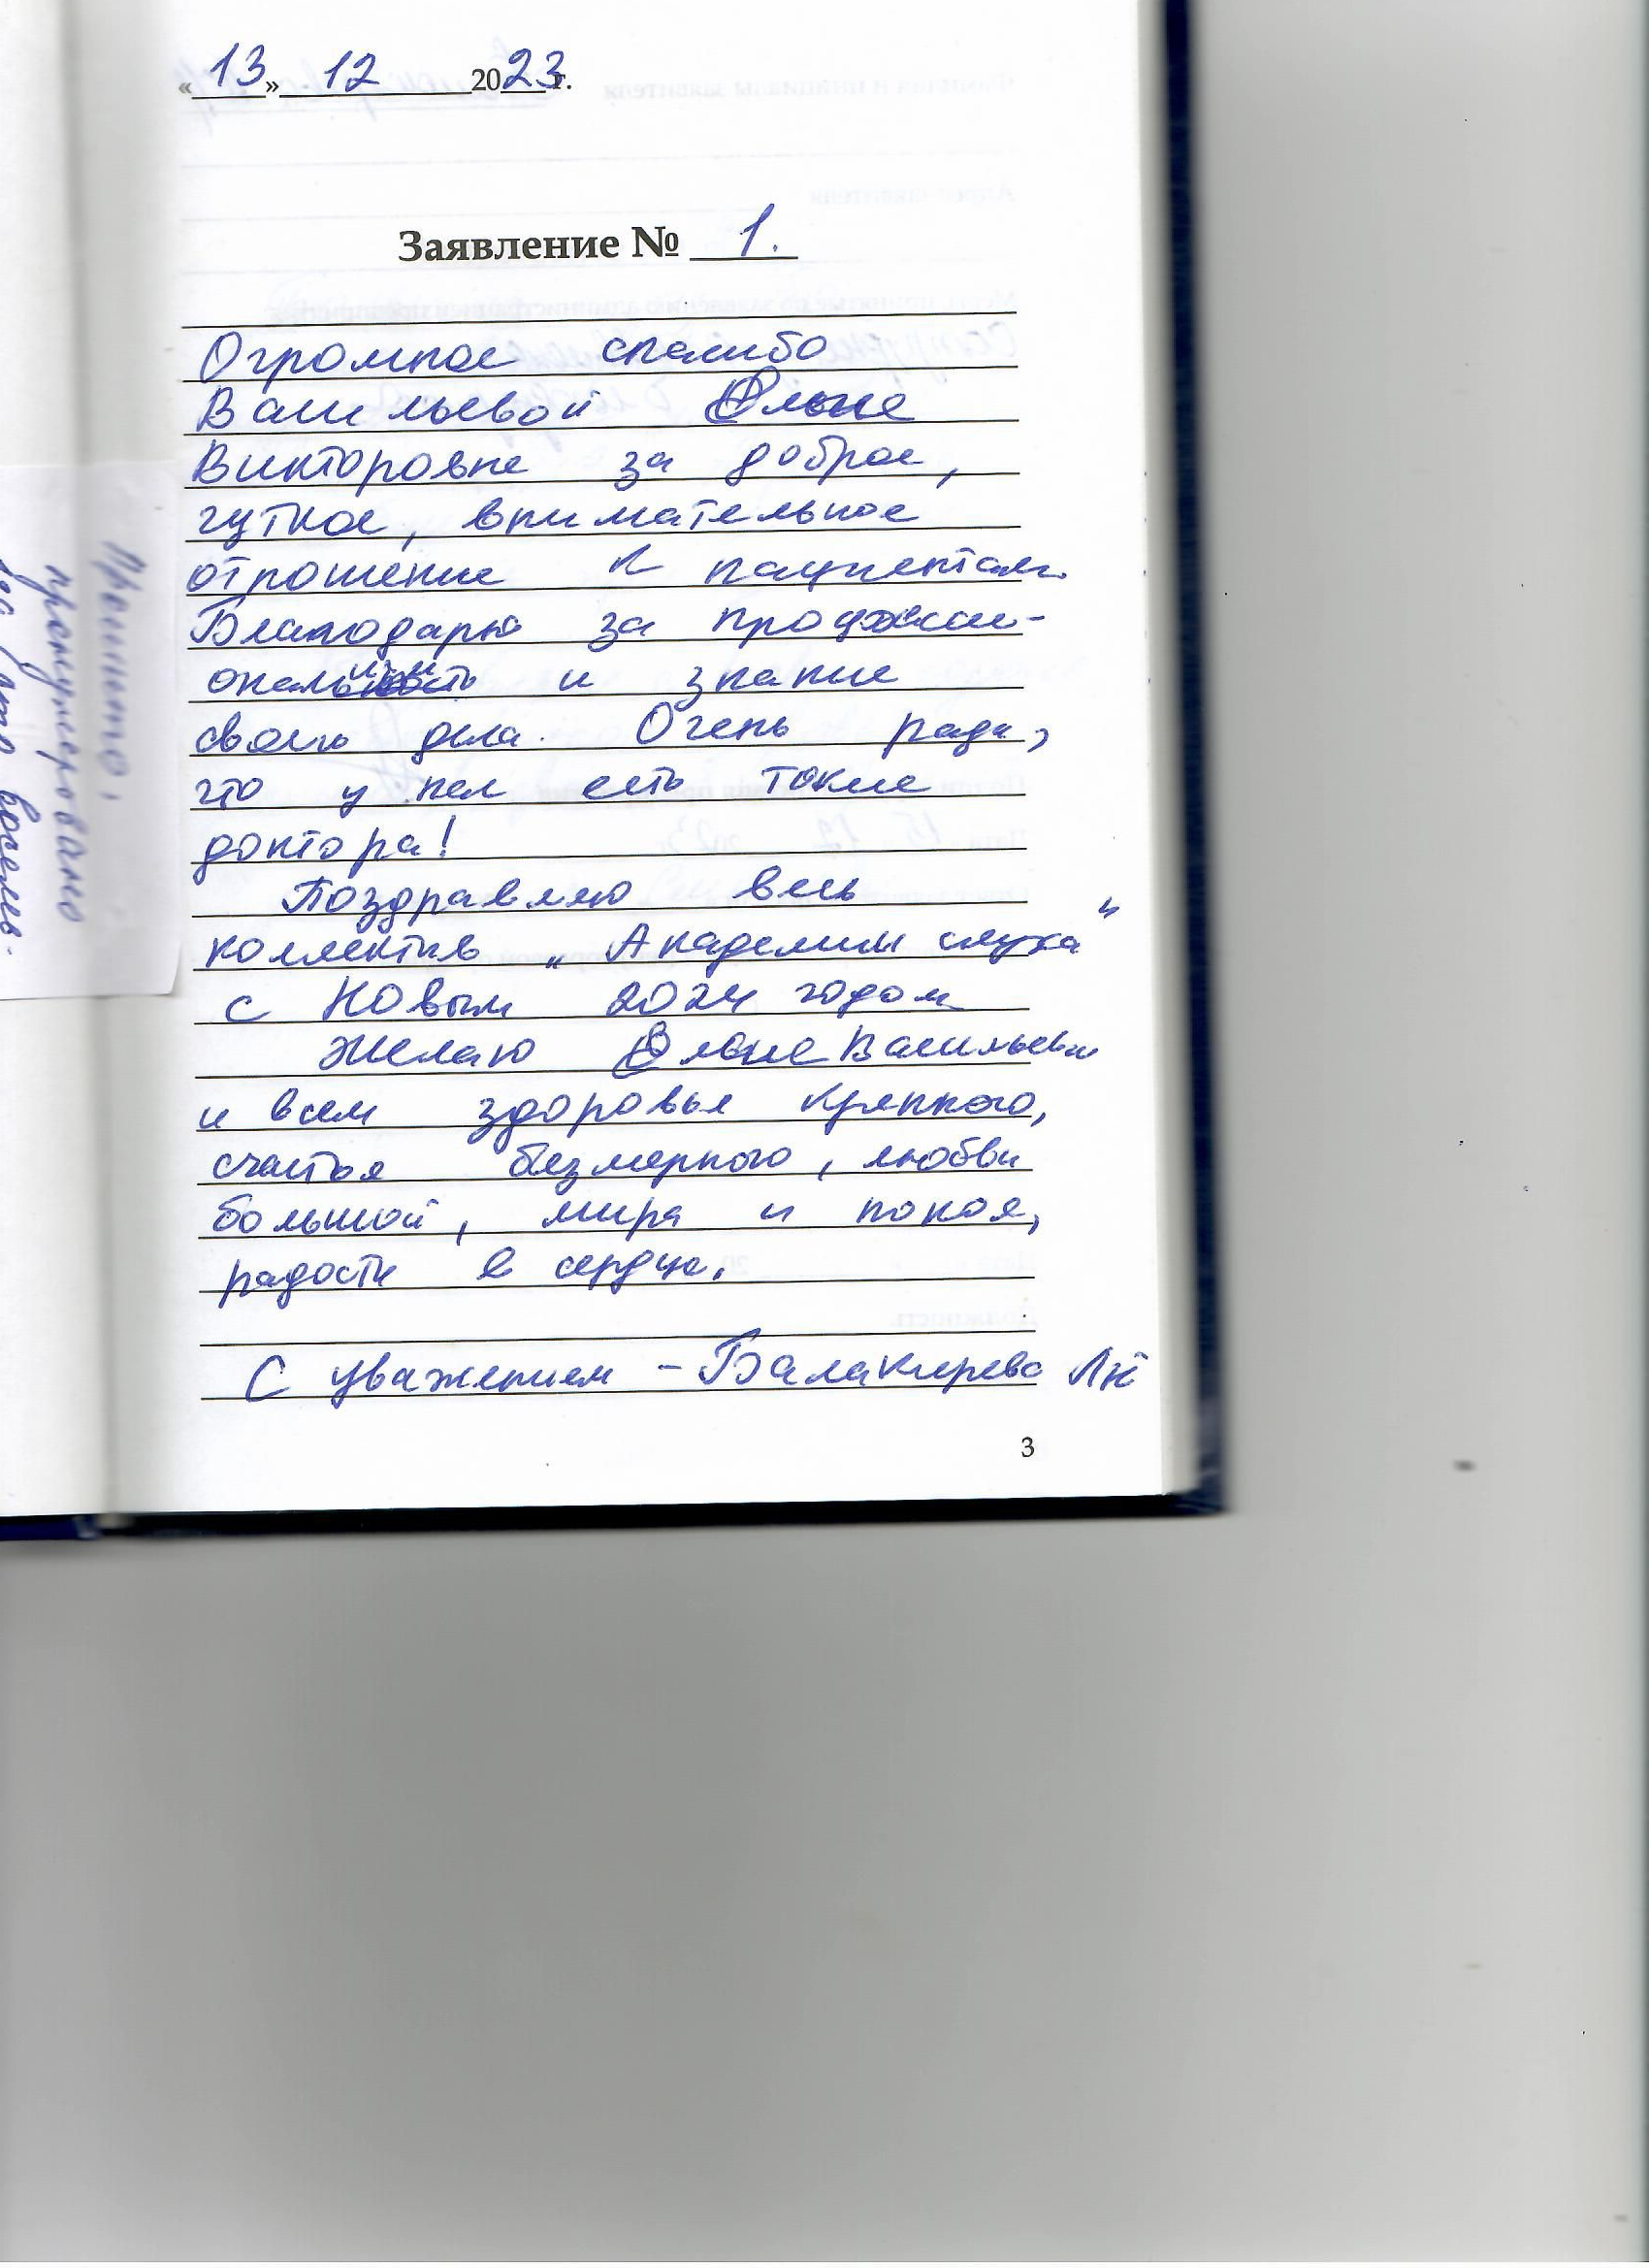 «13» 12 2023 г.
Заявление № 1.
Огромное спасибо
Васильевой Ольге
Викторовне за доброе,
чуткое, внимательное
отношение к пациентам.
Благодарю за професси-
и знание
своего дела. Очень рада,
что у нас есть такие
доктора!
Поздравляю весь
коллектив „Академии слуха"
с Новым 2024 годом
Желаю Ольге Васильевне
и всем здоровья крепкого,
счастья безмерного, любви
большой, мира и покоя,
радости в сердце.
С уважением - Балакирева
3
Прошито,
пронумеровано